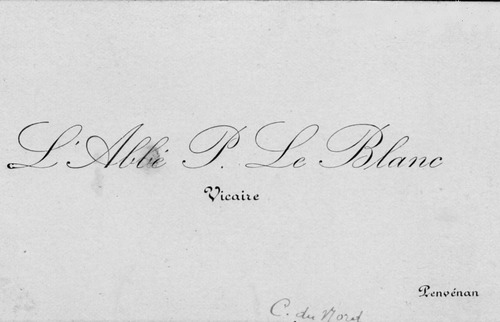 L'Abbé P. Le Blanc
Vicaire
Penvénan
C. du Nord